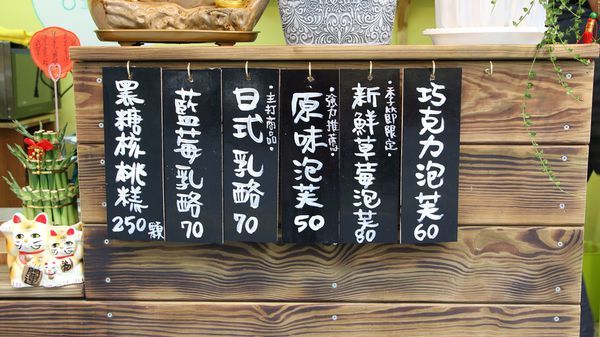 巧克力泡芙
60
•季節限定•
新鮮草莓泡芙
60
•強力推薦•
原味泡芙
50
•主打商品•
日式乳酪
70
藍莓乳酪
70
黑糖核桃糕
250顆